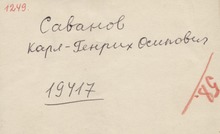 1249.
Саванов
Карл-Генрих Осипович
19417
58